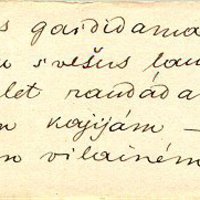 s gaididama
svešus lau
let raudāda
kājijām —
vilainēm